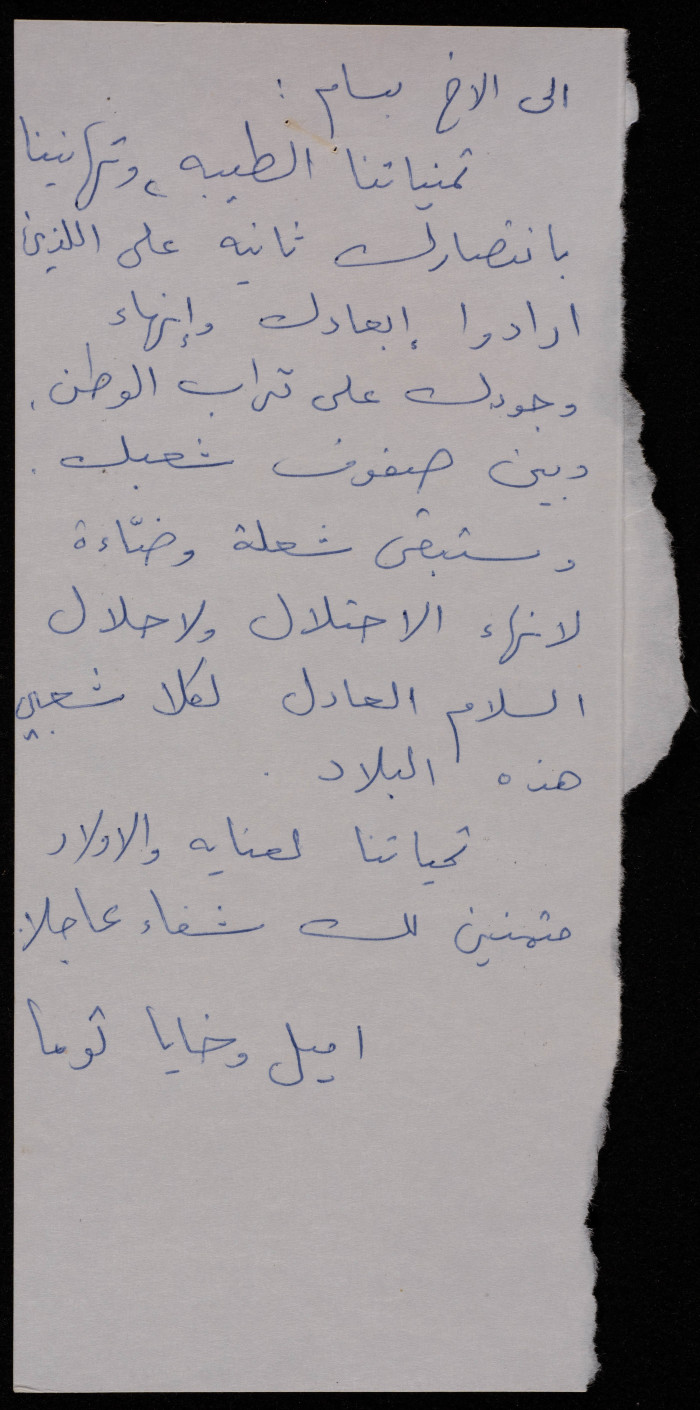 الى الاخ بسام :
تمنياتنا الطيبه، وتهانينا
بانتصارك ثانيه على اللذين
ارادوا إبعادك وإنهاء
وجودك على تراب الوطن.
وبين صفوف شعبك.
وستبقى شعلة وضّاءة
لانهاء الاحتلال ولاحلال
السلام العادل لكلا شعبي
هذه البلاد.
تحياتنا لعنايه والاولاد
متمنين لك شفاء عاجلا.
اميل وحايا توما